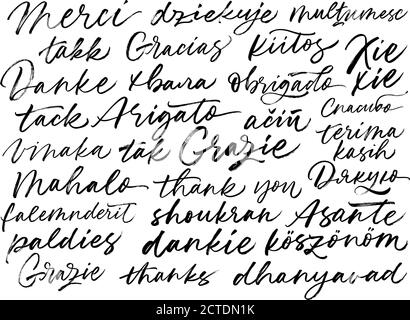 Merci dziękuję mulţumesc
takk Gracias kiitos Xie
Danke хвала obrigado xie
tack Arigato ačiū Спасибо
vinaka tak Grazie terima
kasih
Mahalo thank you Дякую
falemnderit shoukran Asante
paldies dankie köszönöm
Grazie thanks dhanyavad
alamy
Image ID: 2CTDN1K
www.alamy.com